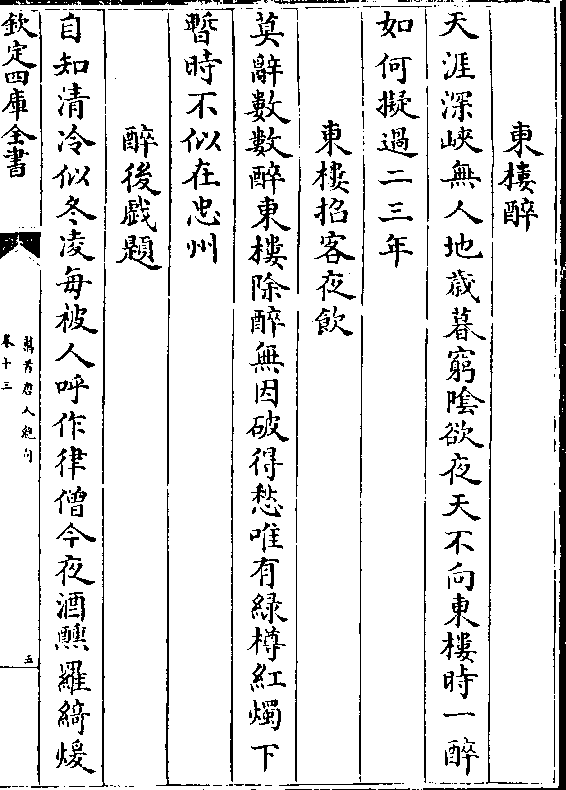 東樓醉
天涯深峽無人地歲暮窮陰欲夜天不向東樓時一醉
如何擬過二三年
東樓招客夜飲
莫辭數數醉東樓除醉無因破得愁唯有緑樽紅燭下
暫時不似在忠州
醉後戲題
自知清冷似冬凌每被人呼作律僧今夜酒醺羅綺煖
欽定四庫全書
萬首唐人絶句
卷十三
五